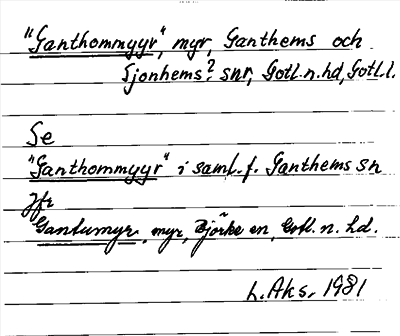 "Ganthommyyr", myr, Ganthems och
Sjonhems? snr, Gotl.n.hd, Gotl.l.
Se
"Ganthommyyr" i saml. f. Ganthems sn
Jfr
Gantumyr, myr, Björke sn, Gotl. n. hd.
L. Aks. 1981